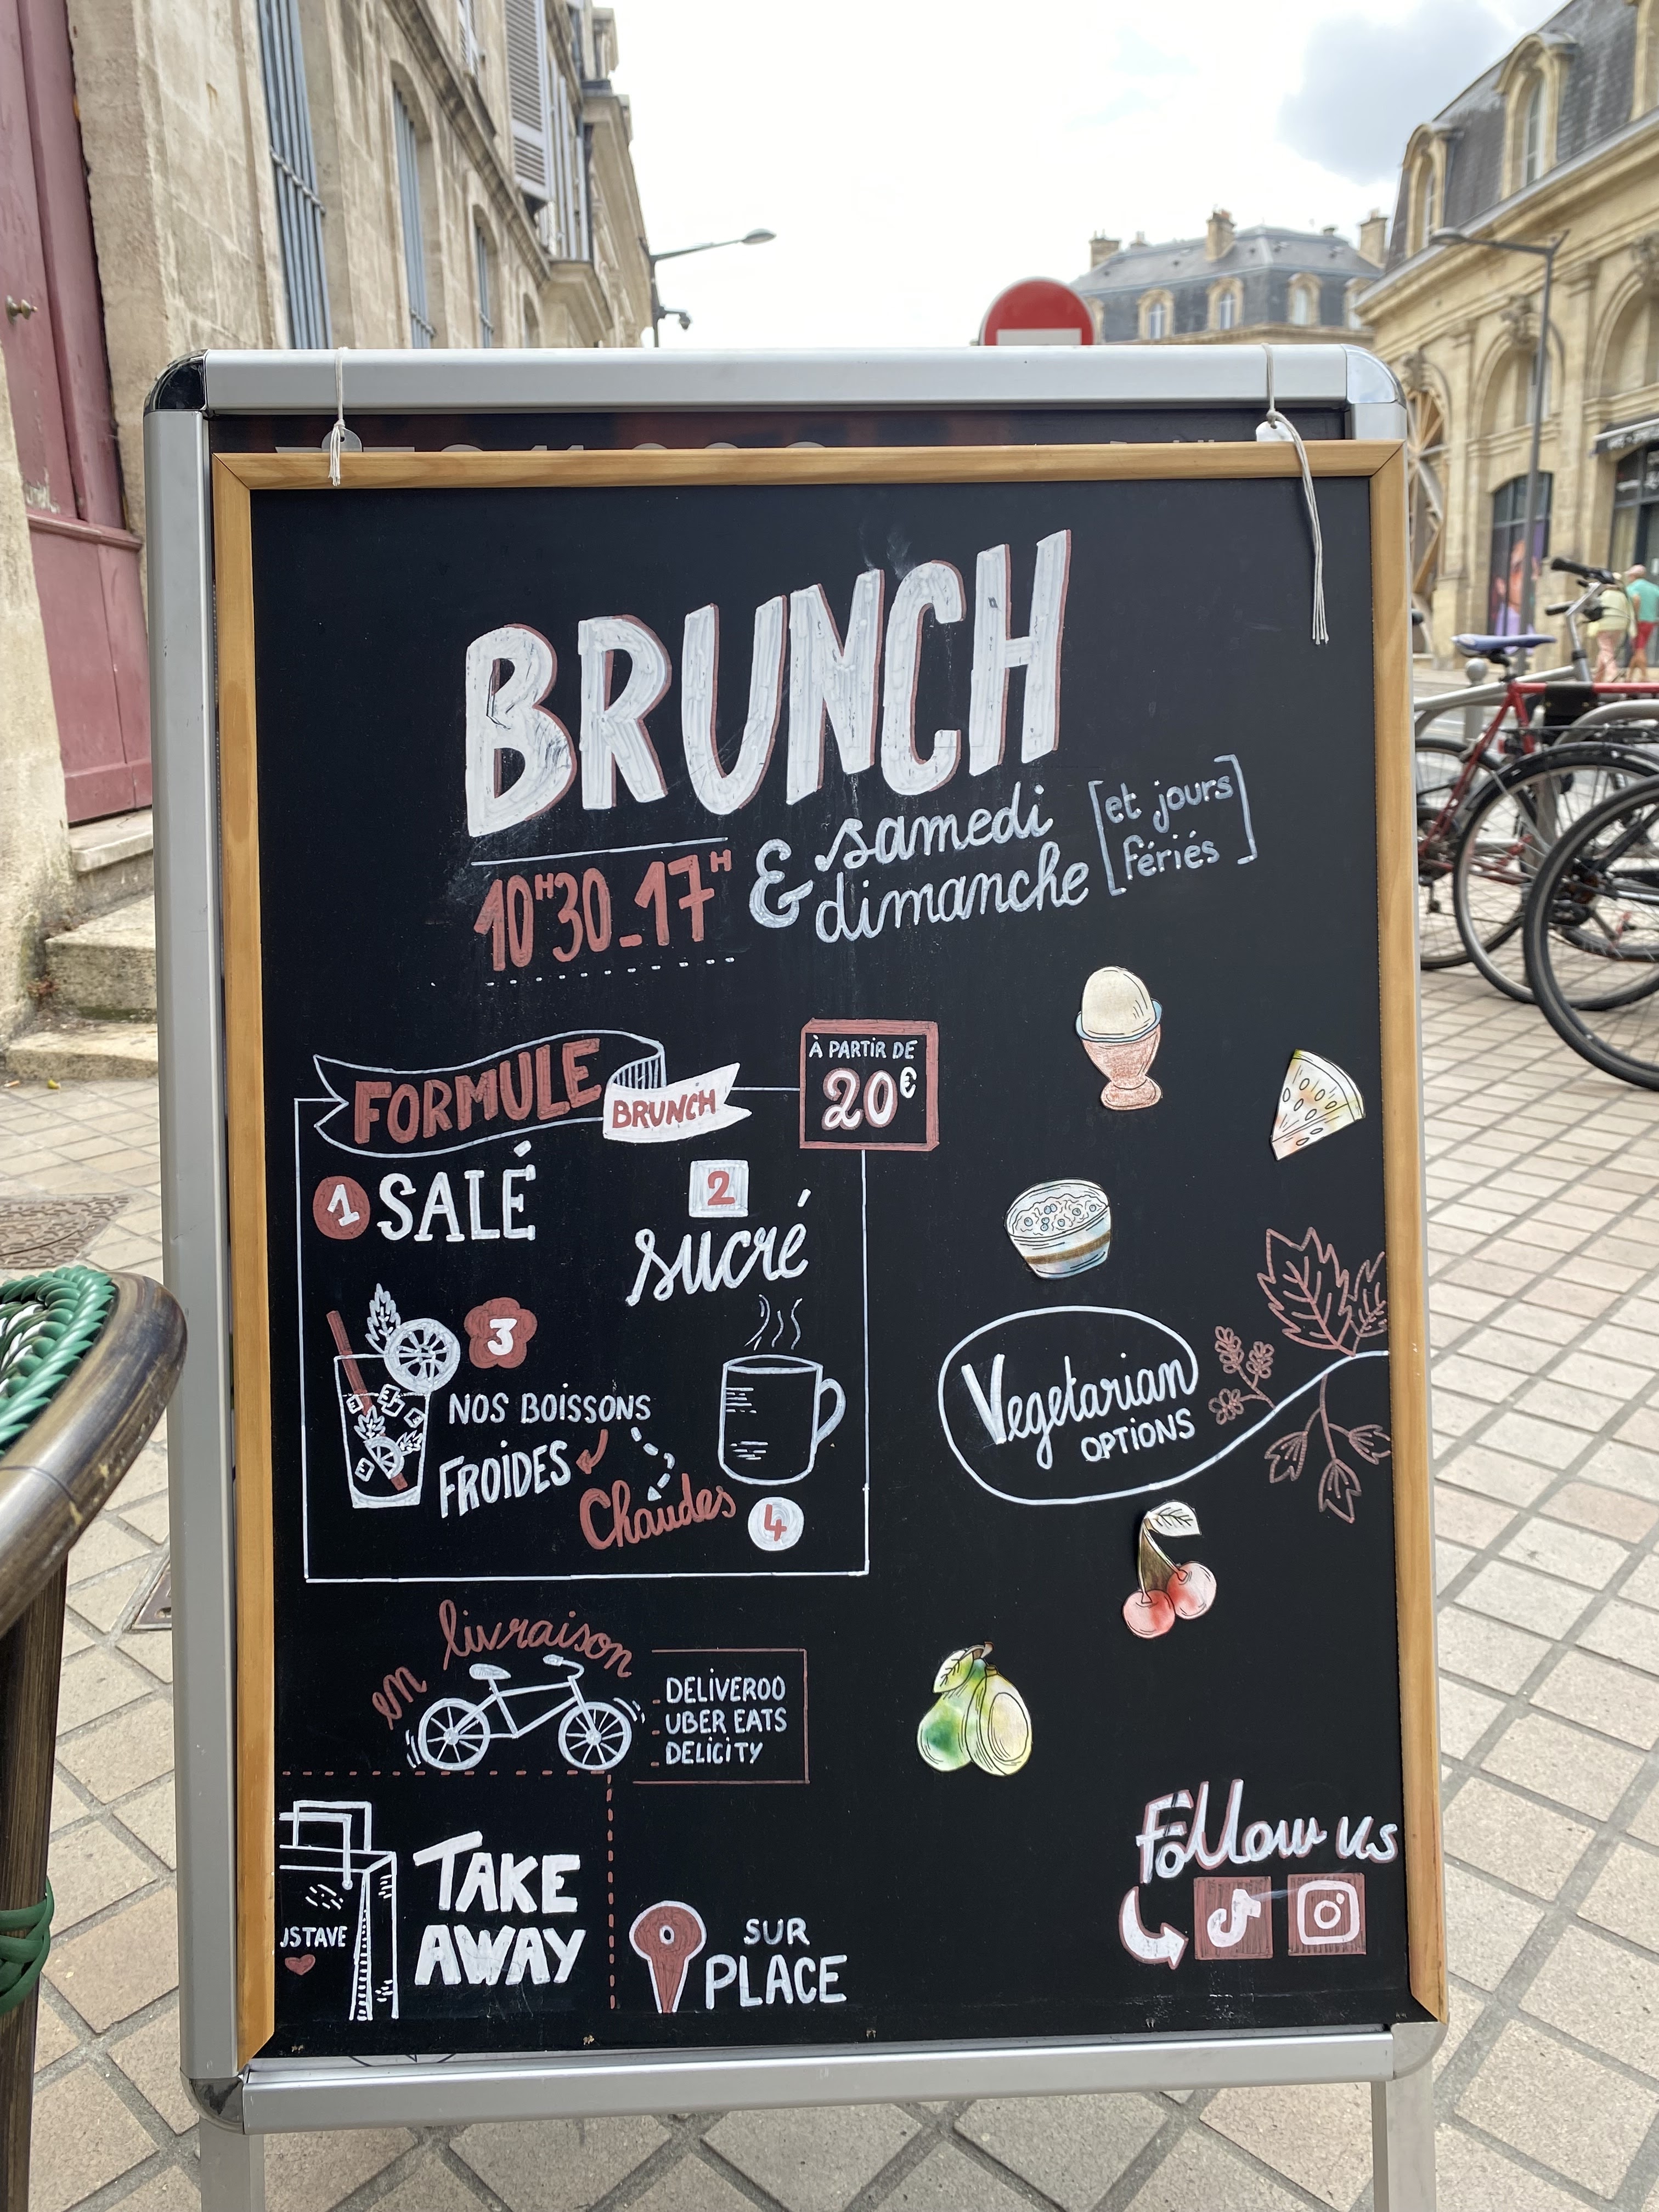 BRUNCH
10H30-17H & samedi dimanche [et jours fériés]
FORMULE BRUNCH
À PARTIR DE
20€
1 SALÉ
2
sucré
3
NOS BOISSONS
FROIDES
Chaudes
4
Vegetarian
OPTIONS
en livraison
- DELIVEROO
- UBER EATS
- DELICITY
TAKE
AWAY
SUR
PLACE
Follow us